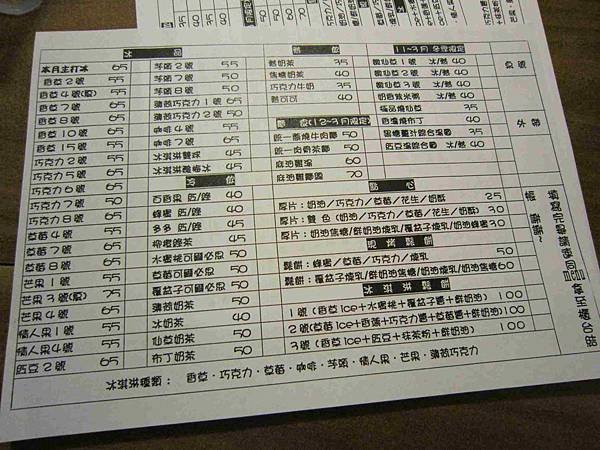 冰品
本月主打冰 65
香草2號 55
香草4號(酒) 55
香草7號 65
香草8號 65
香草10號 55
香草15號 55
巧克力2號 55
巧克力5號 65
巧克力6號 65
巧克力7號 55
巧克力8號 65
草莓4號 55
草莓7號 65
草莓8號 65
花果1號 55
花果3號(酒) 75
花果4號 65
情人果1號 55
情人果4號 55
紅豆2號 65
芋頭2號 55
芋頭7號 50
芋頭8號 50
薄荷巧克力1號 65
薄荷巧克力2號 50
咖啡4號 55
咖啡7號 55
45
45
冷飲
百香果 40
蜂蜜 40
多多 45
柳橙綠茶 45
水蜜桃可爾必思 50
草莓可爾必思 50
覆盆子可爾必思 50
薄荷奶茶 40
冰奶茶 40
仙草奶茶 50
布丁奶茶 50
熱飲
熱奶茶 35
焦糖奶茶 40
巧克力牛奶 35
熱可可 40
熱食(12~3月限定)
統一蔥燒牛肉麵 50
統一肉骨茶麵 50
麻油雞湯 60
麻油雞麵線 70
11~3月 冬季限定
1號 冰/熱 40
2號 冰/熱 40
3號 冰/熱 40
奶香紫米粥 冰/熱 40
極品燒仙草 35
香濃燒布丁 40
黑糖薑汁綜合湯圓 35
紅豆湯綜合圓 冰/熱 40
點心
厚片：奶油/巧克力/草莓/花生/奶酥 25
厚片：雙色(奶油/巧克力/草莓/花生/奶酥) 30
厚片：奶油焦糖/鮮奶油煉乳/覆盆子煉乳/奶油蜂蜜 30
現烤鬆餅
鬆餅：蜂蜜/草莓/巧克力/煉乳 50
鬆餅：覆盆子煉乳/鮮奶油焦糖/奶油煉乳/奶油焦糖 60
冰淇淋鬆餅
1號(香草Ice+水蜜桃+覆盆子醬+鮮奶油) 100
2號(草莓Ice+香蕉+巧克力醬+草莓醬+鮮奶油) 100
3號(香草Ice+紅豆+抹茶粉+鮮奶油) 100
桌號
外帶
填寫完畢請拿單至櫃台結
帳，謝謝~
冰淇淋種類：香草．巧克力．草莓．咖啡．芋頭．情人果．花果．薄荷巧克力